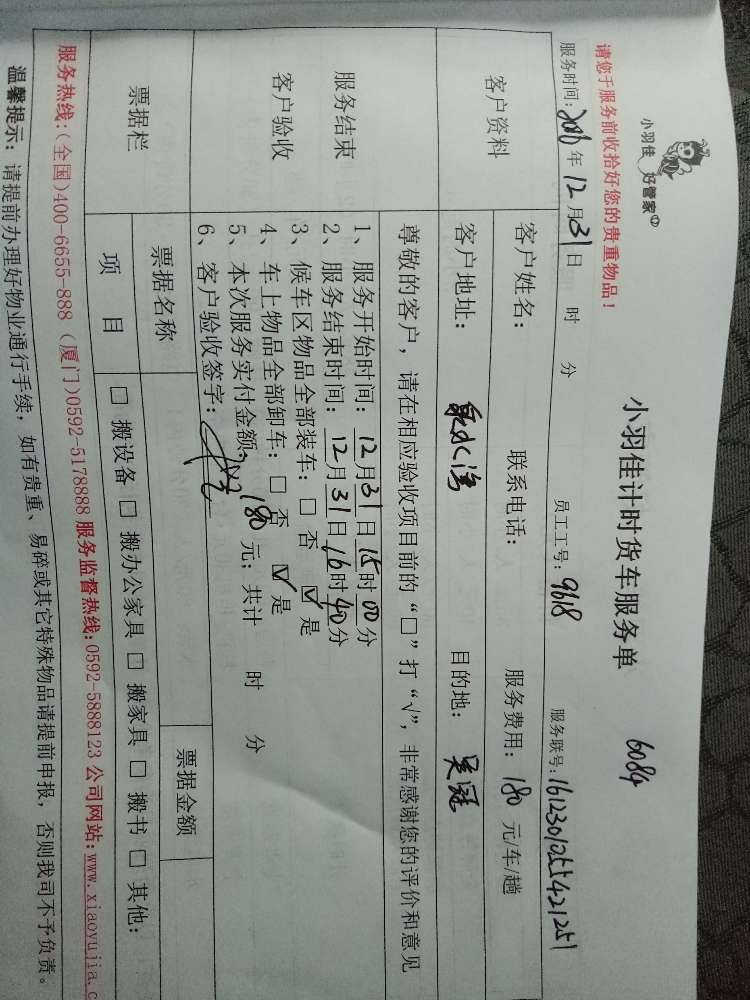 小羽佳 好管家
小羽佳计时货车服务单 6084
请您于服务前收拾好您的贵重物品!
服务时间:2016年12月31日 时 分 员工工号:9618 服务联号:1612301255421251
客户资料
客户姓名: 联系电话: 服务费用:180元/车/趟
客户地址: 目的地:吴冠
尊敬的客户,请在相应验收项目前的“□”打“√”,非常感谢您的评价和意见
服务结束
客户验收
1、服务开始时间:12月31日15时00分
2、服务结束时间:12月31日16时40分
3、候车区物品全部装车:□ 否 ☑ 是
4、车上物品全部卸车:□ 否 ☑ 是
5、本次服务实付金额:180元;共计 时 分
6、客户验收签字:
票据栏
票据名称 票据金额
项 目 □ 搬设备 □ 搬办公家具 □ 搬家具 □ 搬书 □ 其他:
服务热线:(全国)400-6655-888 (厦门)0592-5178888 服务监督热线:0592-5888123 公司网站:www.xiaoyujia.c
温馨提示:请提前办理好物业通行手续,如有贵重、易碎或其它特殊物品请提前申报,否则我司不予负责。